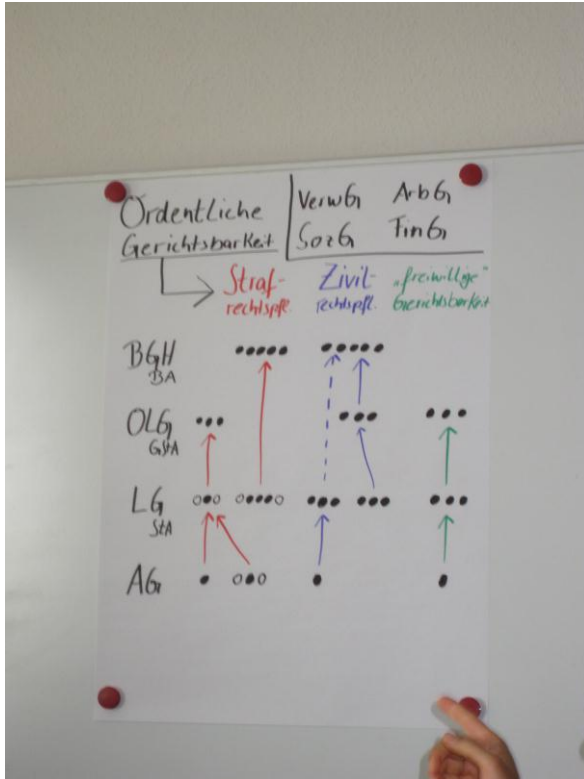 Ordentliche
Gerichtsbarkeit
VerwG ArbG
SozG FinG
Straf-
rechtspfl.
Zivil-
rechtspfl.
„freiwillige"
Gerichtsbarkeit
BGH
BA
OLG
GStA
LG
StA
AG